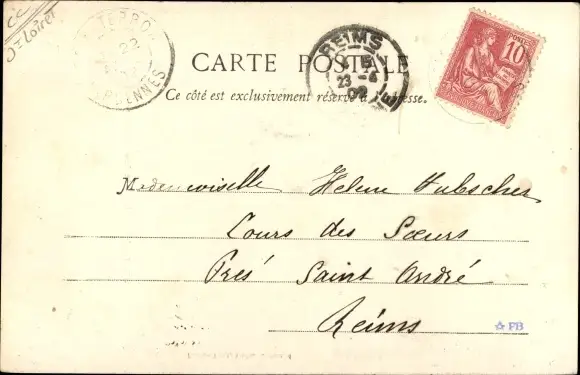 CC
Dt Loiret
TERRO
22
ARDENNES
REIMS
15
23 -6
02
POSTES
10
CARTE POSTALE
Ce côté est exclusivement réservé à l'adresse.
Mademoiselle Helene Hubscher
Cours des Sœurs
Près Saint André
Reims
☆ FB